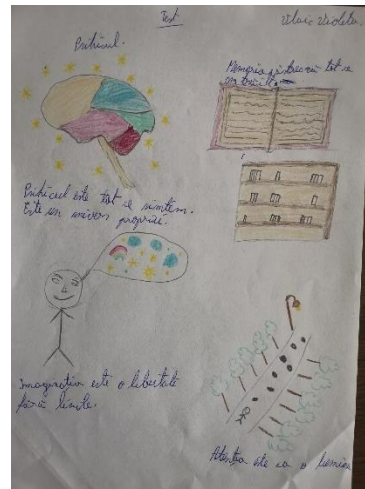 Test
Psihicul.
Memoria păstrează tot ce
Psihicul este tot ce simtem.
Este un univers propriu.
Imaginația este o libertate
fără limite.
Atenția este ca o lumina